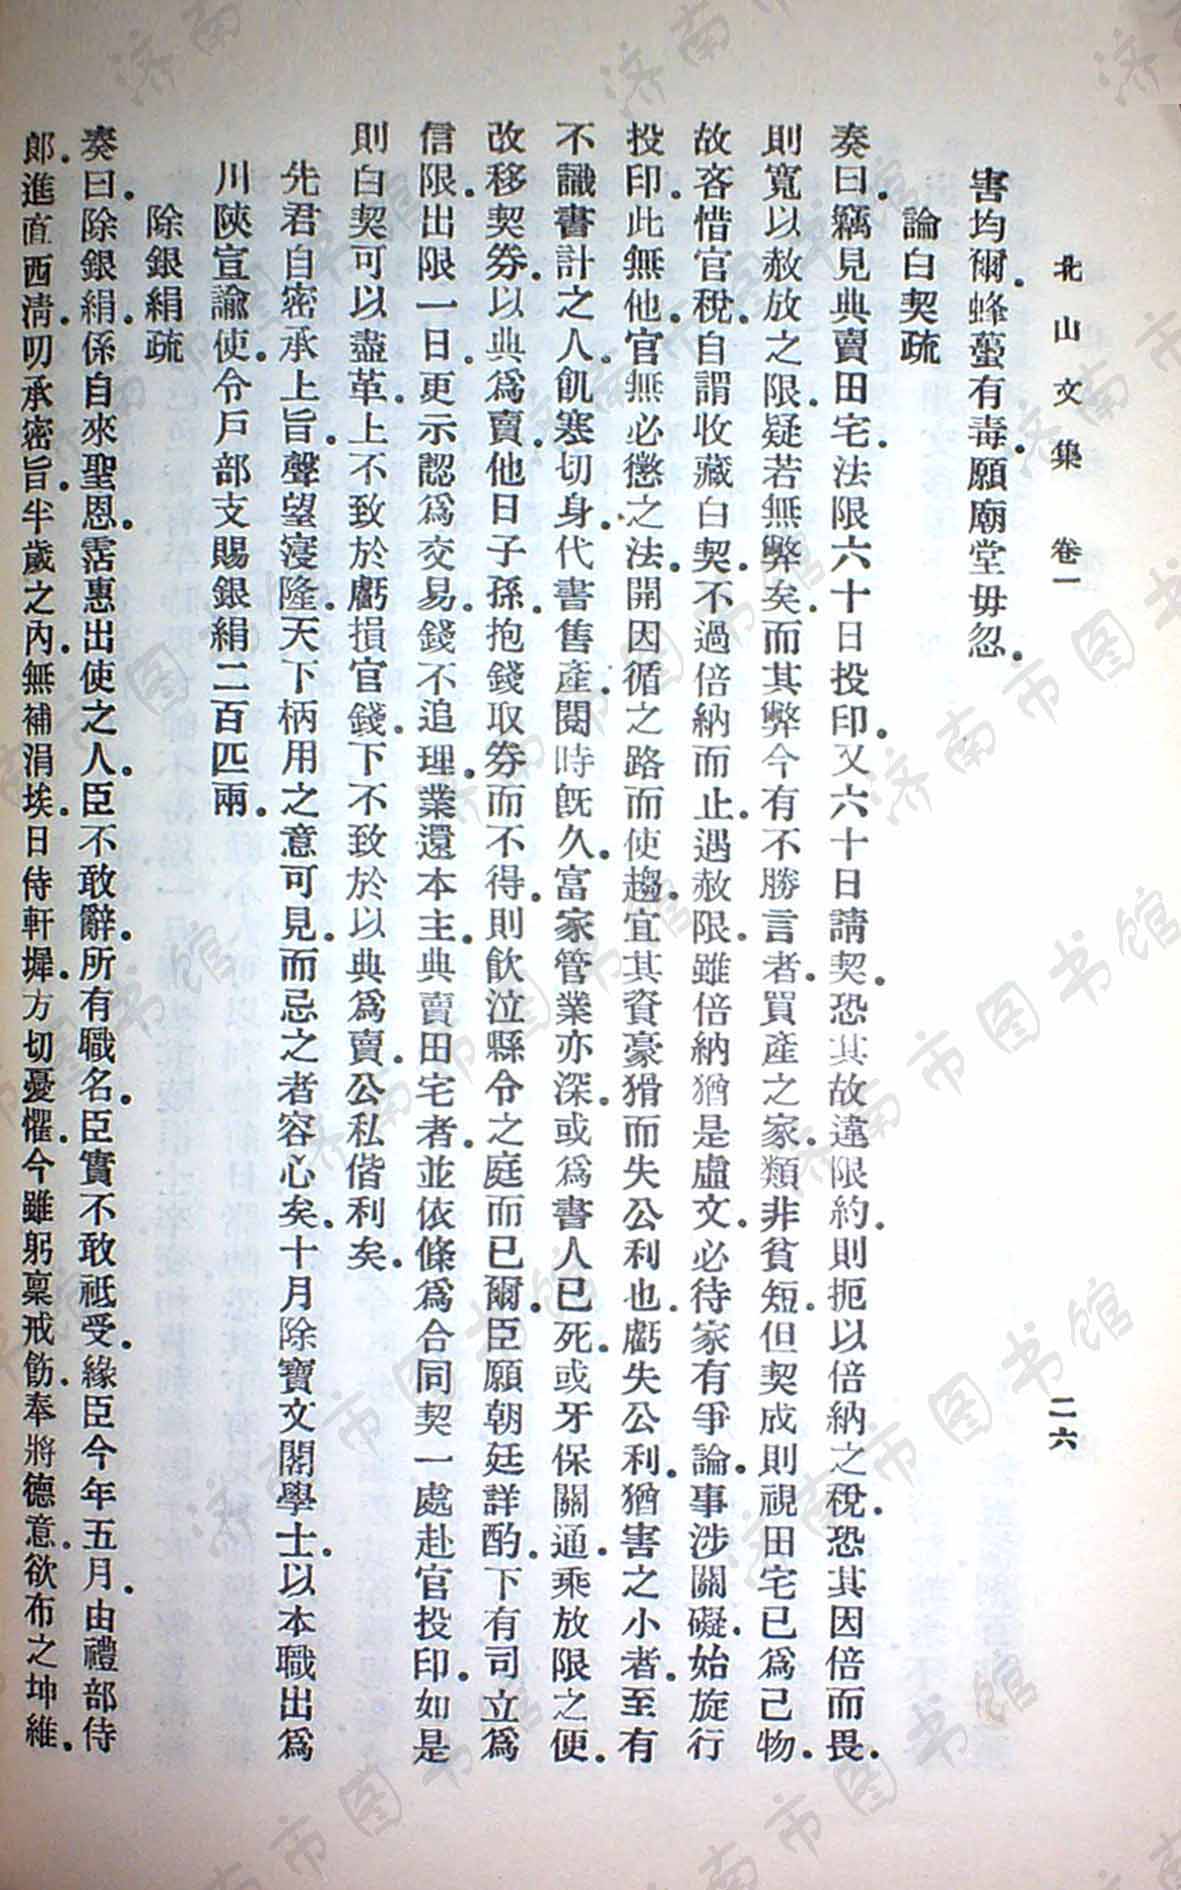 北山文集 卷一 二六
害均爾.蜂蠆有毒.願廟堂毋忽.
論白契疏
奏曰.竊見典賣田宅.法限六十日投印.又六十日請契.恐其故違限約.則扼以倍納之稅.恐其因倍而畏.
則寬以赦放之限.疑若無弊矣.而其弊今有不勝言者.買產之家.類非貧短.但契成則視田宅已為己物.
故吝惜官稅.自謂收藏白契.不過倍納而止.遇赦限.雖倍納猶是虛文.必待家有爭論.事涉關礙.始旋行
投印.此無他.官無必懲之法.開因循之路而使趨.宜其資豪猾而失公利也.虧失公利.猶害之小者.至有
不識書計之人.飢寒切身.代書售產.閱時旣久.富家管業亦深.或為書人已死.或牙保關通.乘放限之便.
改移契券.以典為賣.他日子孫.抱錢取券而不得.則飲泣縣令之庭而已爾.臣願朝廷詳酌.下有司立為
信限.出限一日.更示認為交易.錢不追理.業還本主.典賣田宅者.並依條為合同契一處赴官投印.如是
則白契可以盡革.上不致於虧損官錢.下不致於以典為賣.公私偕利矣.
先君自密承上旨.聲望寖隆.天下柄用之意可見.而忌之者容心矣.十月除寶文閣學士.以本職出為
川陝宣諭使.令戶部支賜銀絹二百匹兩.
除銀絹疏
奏曰.除銀絹.係自來聖恩.霑惠出使之人.臣不敢辭.所有職名.臣實不敢祗受.緣臣今年五月.由禮部侍
郎.進直西淸.叨承密旨.半歲之內.無補涓埃.日侍軒墀.方切憂懼.今雖躬稟戒飭.奉將德意.欲布之坤維.